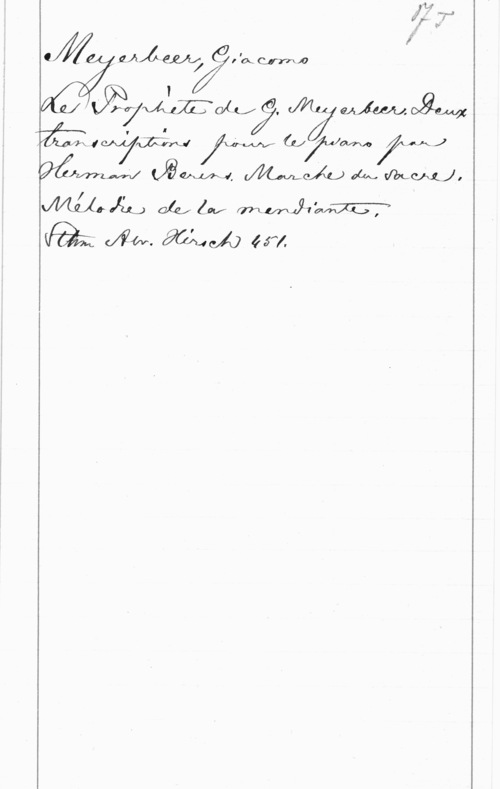 Meyerbeer, Giacomo
Le Prophète de G. Meyerbeer. Deux
transcriptions pour le piano par
Herman Berens. Marche du sacre.
Mélodie de la mendiante.
Sthm Abr. Hirsch 451.